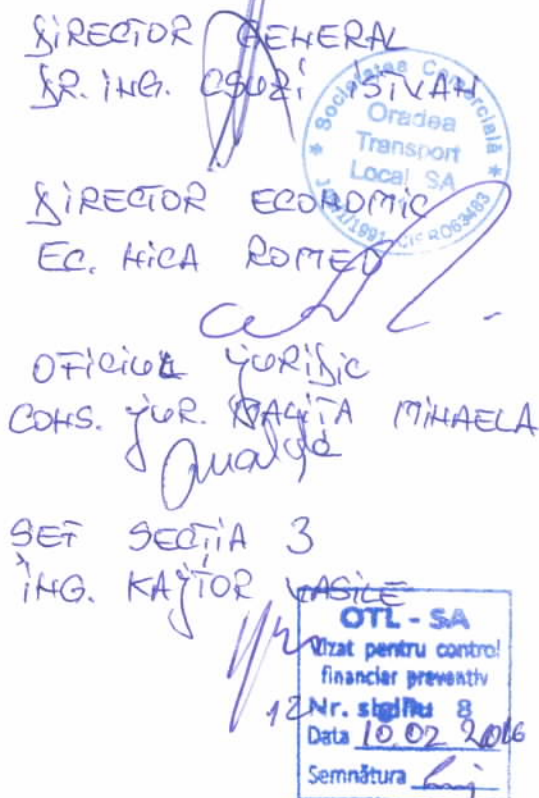 DIRECTOR GENERAL
DR. ING. CSUZI ISTVAN
Societatea Comercială
Oradea
Transport
Local SA
DIRECTOR ECONOMIC
EC. NICA ROMEO
OFICIUL JURIDIC
CONS. JUR. MIHAELA
ȘEF SECȚIA 3
ING. KAJTOR VASILE
OTL - SA
Vizat pentru control
financiar preventiv
Nr. sigiliu 8
Data 10.02 2016
Semnătura